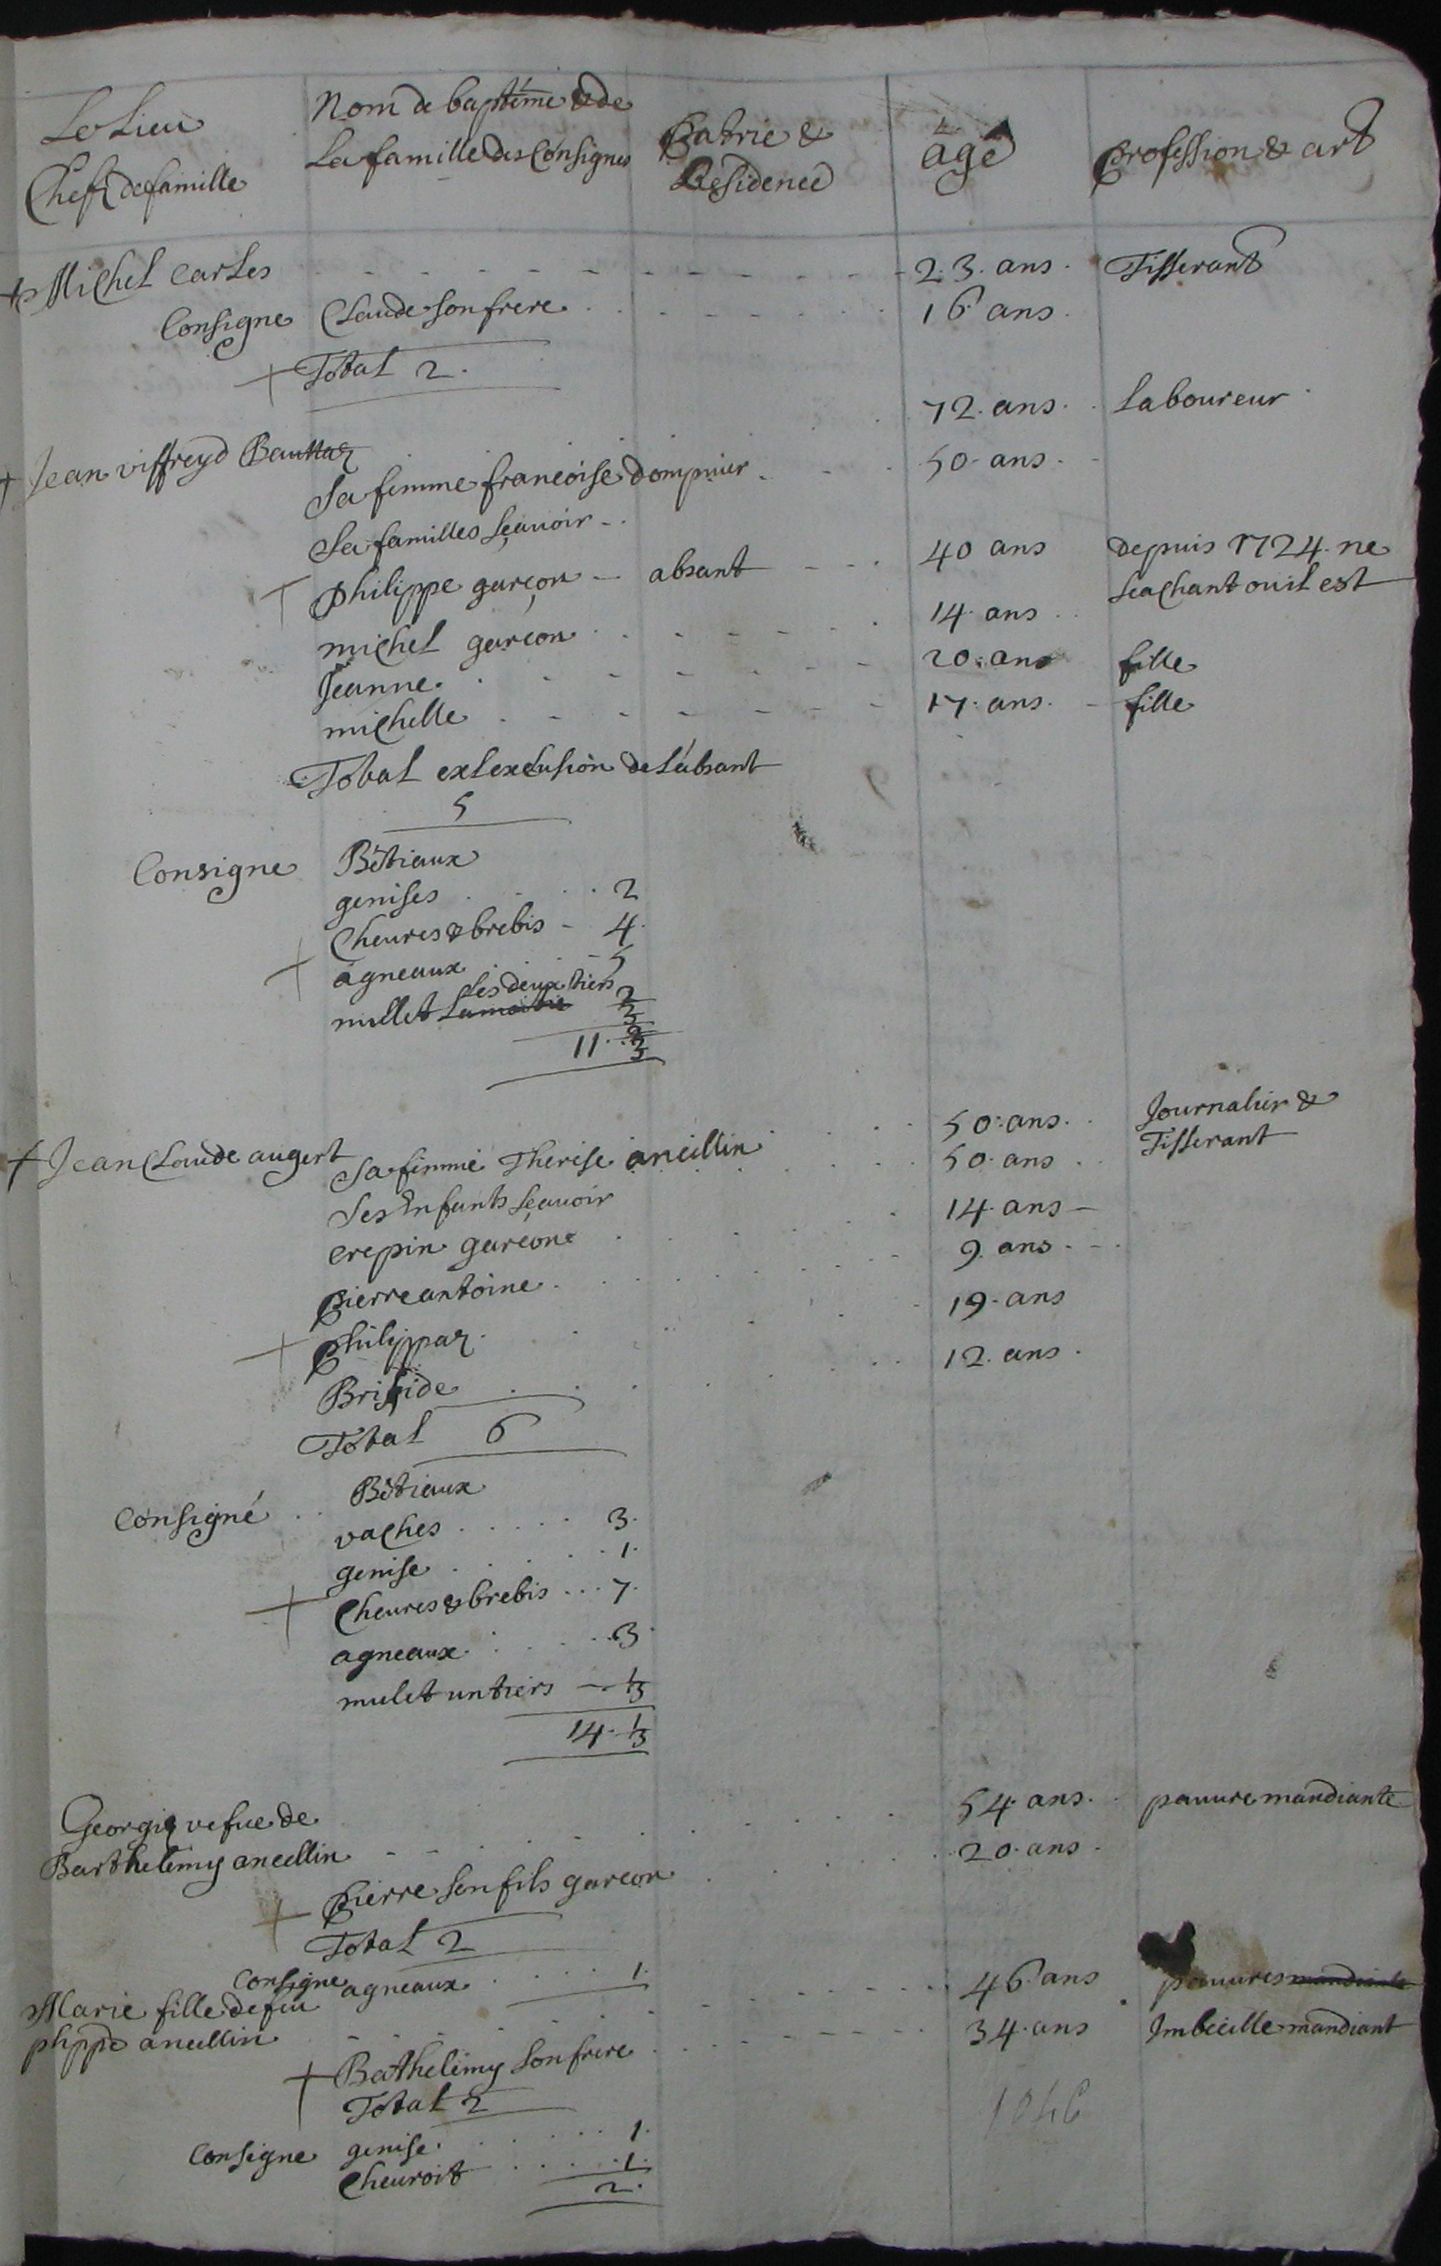 Le Lieu
Chefz de famille
Nom de baptéme & de
La famille des Consignes
Patrie &
Residence
agé
profession & art
Michel Carles 23. ans. Tisserant
Consigne Claude son frere 16 ans.
Total 2.
Jean viffreyd Beauttaz 72. ans. Laboureur
Sa femme francoise dompnier 50. ans.
Sa familles sçauoir
philippe garçon absant 40 ans depuis 1724. ne
seachant ou il est
michel garcon 14. ans
Jeanne 20. ans fille
michelle 17. ans. fille
Total exlexclusion de l'absant
5
Consigne Bétiaux
genises 2
Cheures & brebis 4.
agneaux 5
les deux tiers
mullet La moitie 2/3
11. 2/3
Jean Claude augert 50. ans. Journalier &
Tisserant
Sa femme Therese ancillin 50. ans
Ses Enfants sçauoir
crepin garcon 14. ans
pierre antoine 9. ans
philippaz 19. ans
Brigide 12. ans
Total 6
Consigné Bétiaux
vaches 3.
genise 1.
Cheures & brebis 7.
agneaux 3
mulet un tiers 1/3
14. 1/3
Georgiz vefue de
Barthelemy ancillin 54. ans. pauure mandiante
pierre son fils garcon 20. ans
Total 2
Consigne agneaux 1.
Marie fille de feu
phppe ancillin 46 ans pauures mandiante
Bathelemy son frere 34. ans Imbecille mandiant
Total 2
1046
Consigne genise 1.
Cheuroit 1.
2.